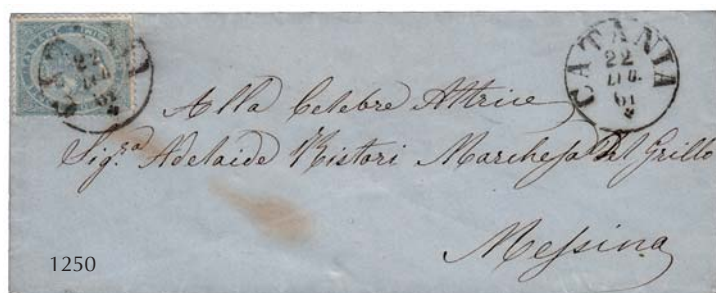 CATANIA
22
LUG.
Alla Celebre Attrice
Sig.ra Adelaide Ristori Marchesa Del Grillo
Messina
1250